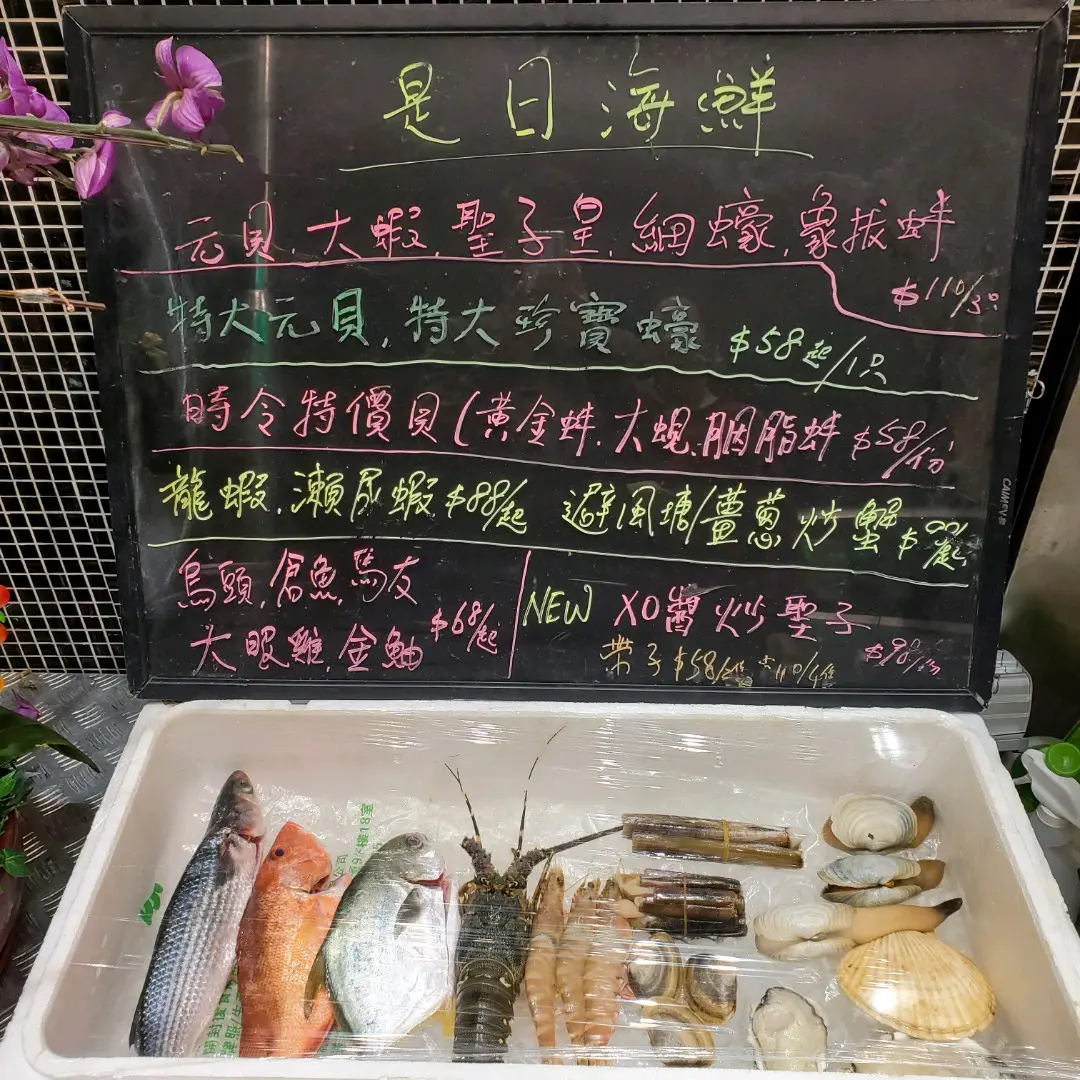 是日海鮮
元貝.大蝦.聖子皇.細蠔.象拔蚌
$110/3只
特大元貝.特大珍寶蠔 $58起/1只
時令特價貝(黃金蚌.大蜆.胭脂蚌 $58/份
龍蝦.瀨尿蝦$88/起 避風塘/薑蔥炒蟹$
烏頭.倉魚.馬友
大眼雞.金鮋 $68/起
NEW XO醬炒聖子
$98/份
帶子$58/2件 $110/4件